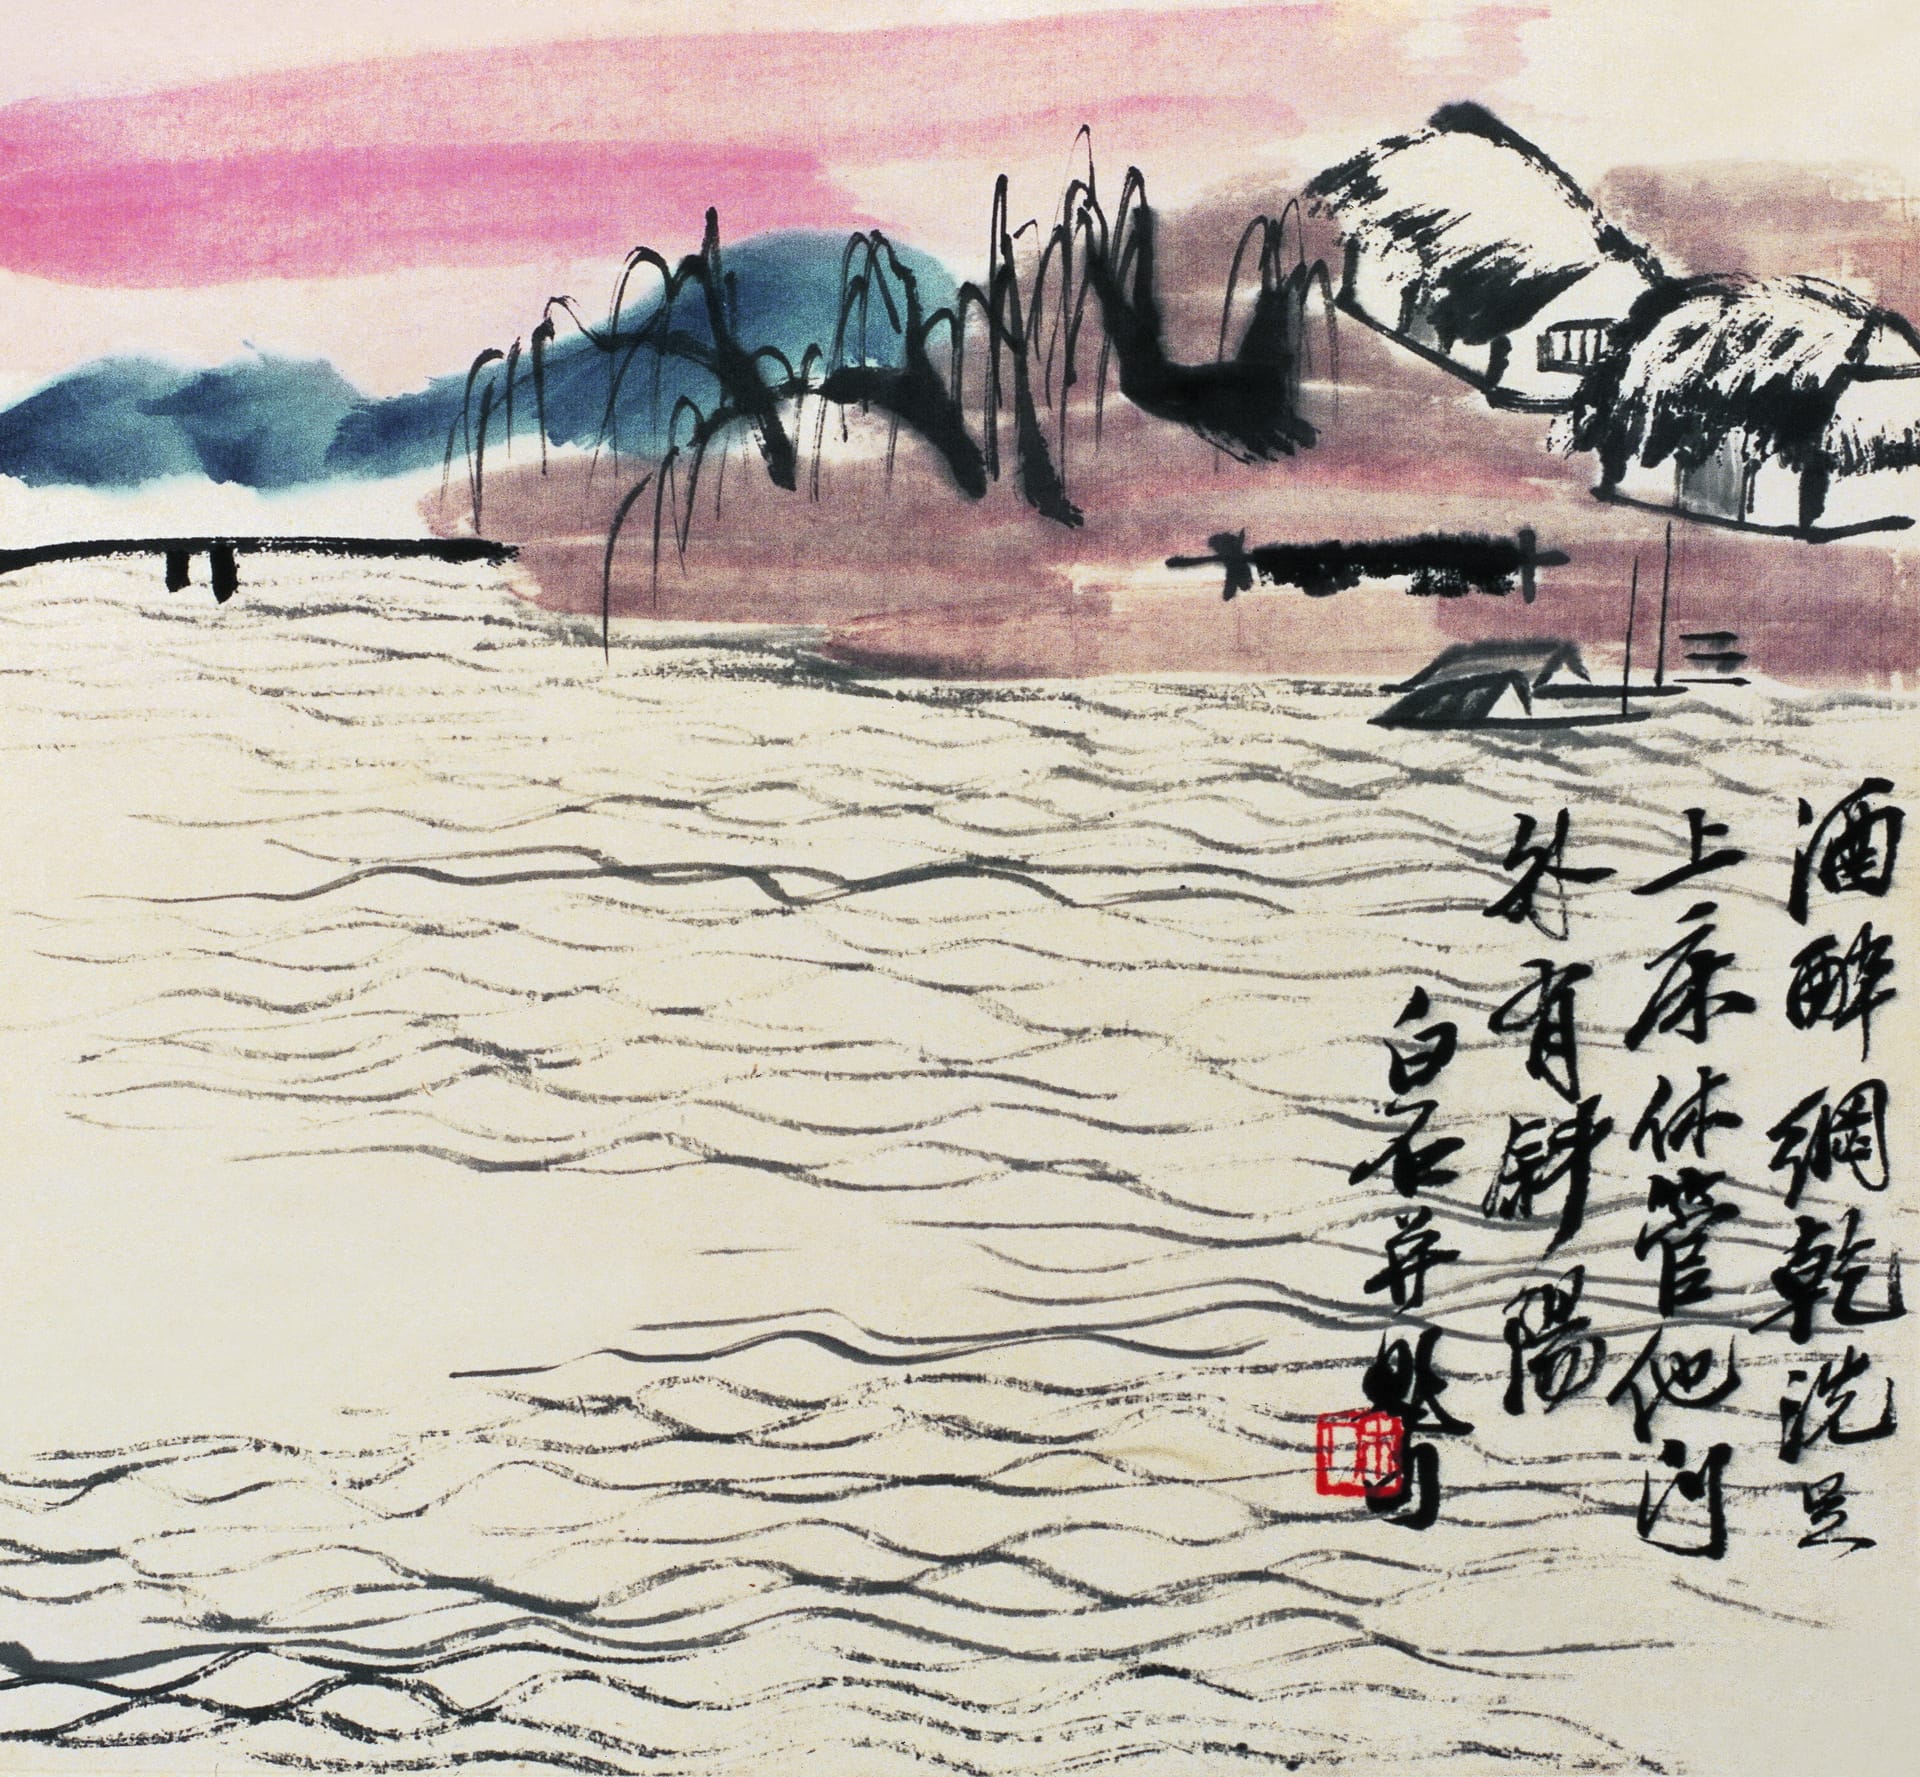 酒醉網乾洗足
上床休管他門
外有斜陽
白石并題句